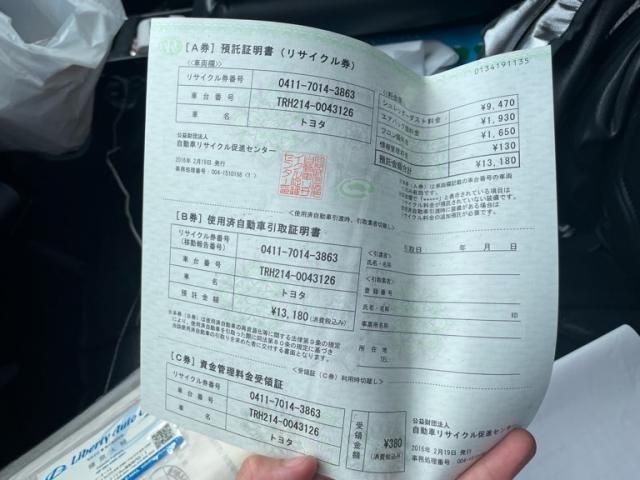 [A券] 預託証明書 (リサイクル券)
0134191135
<車両欄>
リサイクル券番号 0411-7014-3863
車台番号 TRH214-0043126
車名 トヨタ
シュレッダーダスト料金 ¥9,470
エアバッグ類料金 ¥1,930
フロン類料金 ¥1,650
情報管理料金 ¥130
預託金額合計 ¥13,180
公益財団法人
自動車リサイクル促進センター
2015年 2月19日 発行
<使用済自動車引渡時、引取業者切離し>
[B券] 使用済自動車引取証明書
リサイクル券番号
(移動報告番号) 0411-7014-3863
車台番号 TRH214-0043126
車名 トヨタ
預託金額 ¥13,180 (消費税込み)
引取日 年 月 日
<引渡者>
氏名・名称
<引取業者>
登録番号
氏名・名称 印
事業所名
所在地
TEL
<受領証 (C券) 利用時切離し>
[C券] 資金管理料金受領証
リサイクル券番号 0411-7014-3863
車台番号 TRH214-0043126
車名 トヨタ
受領金額 ¥380
(消費税込み)
公益財団法人
自動車リサイクル促進センター
2015年 2月19日 発行
Liberty Auto